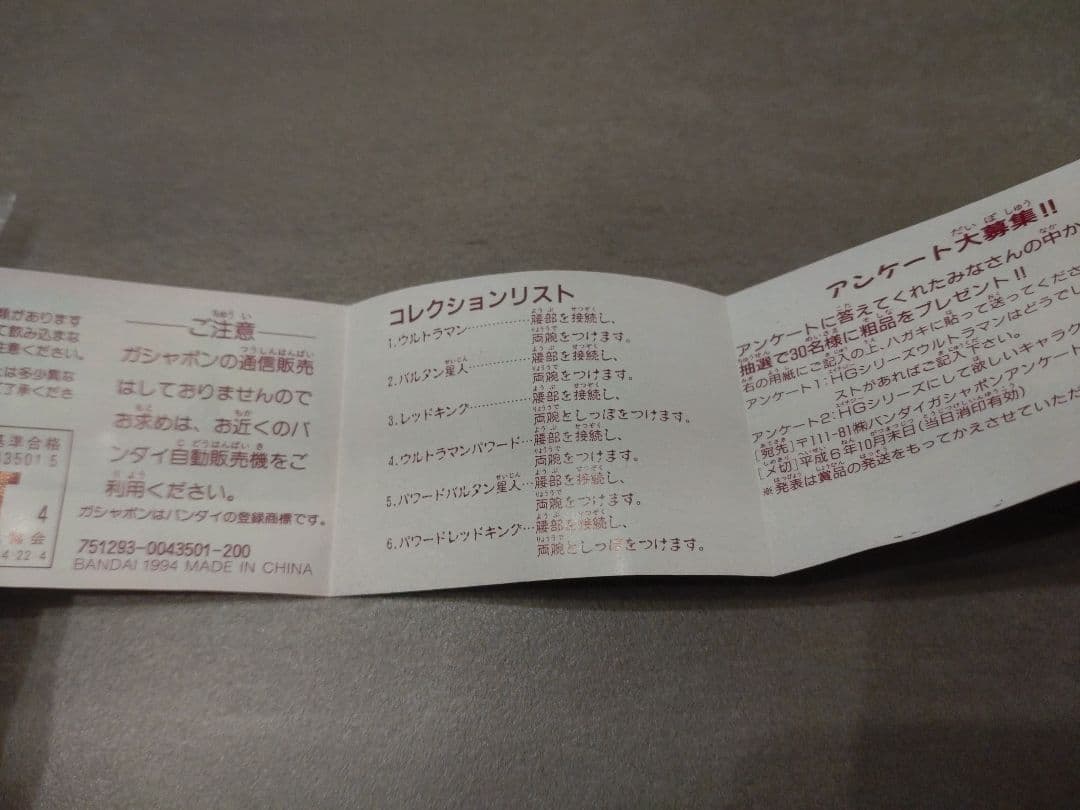 類があります
て飲み込まな
注意ください。
とは多少異な
了承くださ
基準合格
435015
4
会
4 22 4
ご注意
ガシャポンの通信販売
はしておりませんので
お求めは、お近くのバ
ンダイ自動販売機をご
利用ください。
ガシャポンはバンダイの登録商標です。
751293-0043501-200
BANDAI 1994 MADE IN CHINA
コレクションリスト
1.ウルトラマン……………腰部を接続し、
両腕をつけます。
2.バルタン星人……………腰部を接続し、
両腕をつけます。
3.レッドキング……………腰部を接続し、
両腕としっぽをつけます。
4.ウルトラマンパワード…腰部を接続し、
両腕をつけます。
5.パワードバルタン星人…腰部を接続し、
両腕をつけます。
6.パワードレッドキング…腰部を接続し、
両腕としっぽをつけます。
アンケート大募集!!
アンケートに答えてくれたみなさんの中か
抽選で30名様に粗品をプレゼント!!
右の用紙にご記入の上、ハガキに貼って送ってくださ
アンケート1:HGシリーズウルトラマンはどうでし
ストがあればご記入下さい。
アンケート2:HGシリーズにして欲しいキャラク
[宛先]〒111-81㈱バンダイガシャポンアンケート
[〆切]平成6年10月末日(当日消印有効)
※発表は賞品の発送をもってかえさせていただ